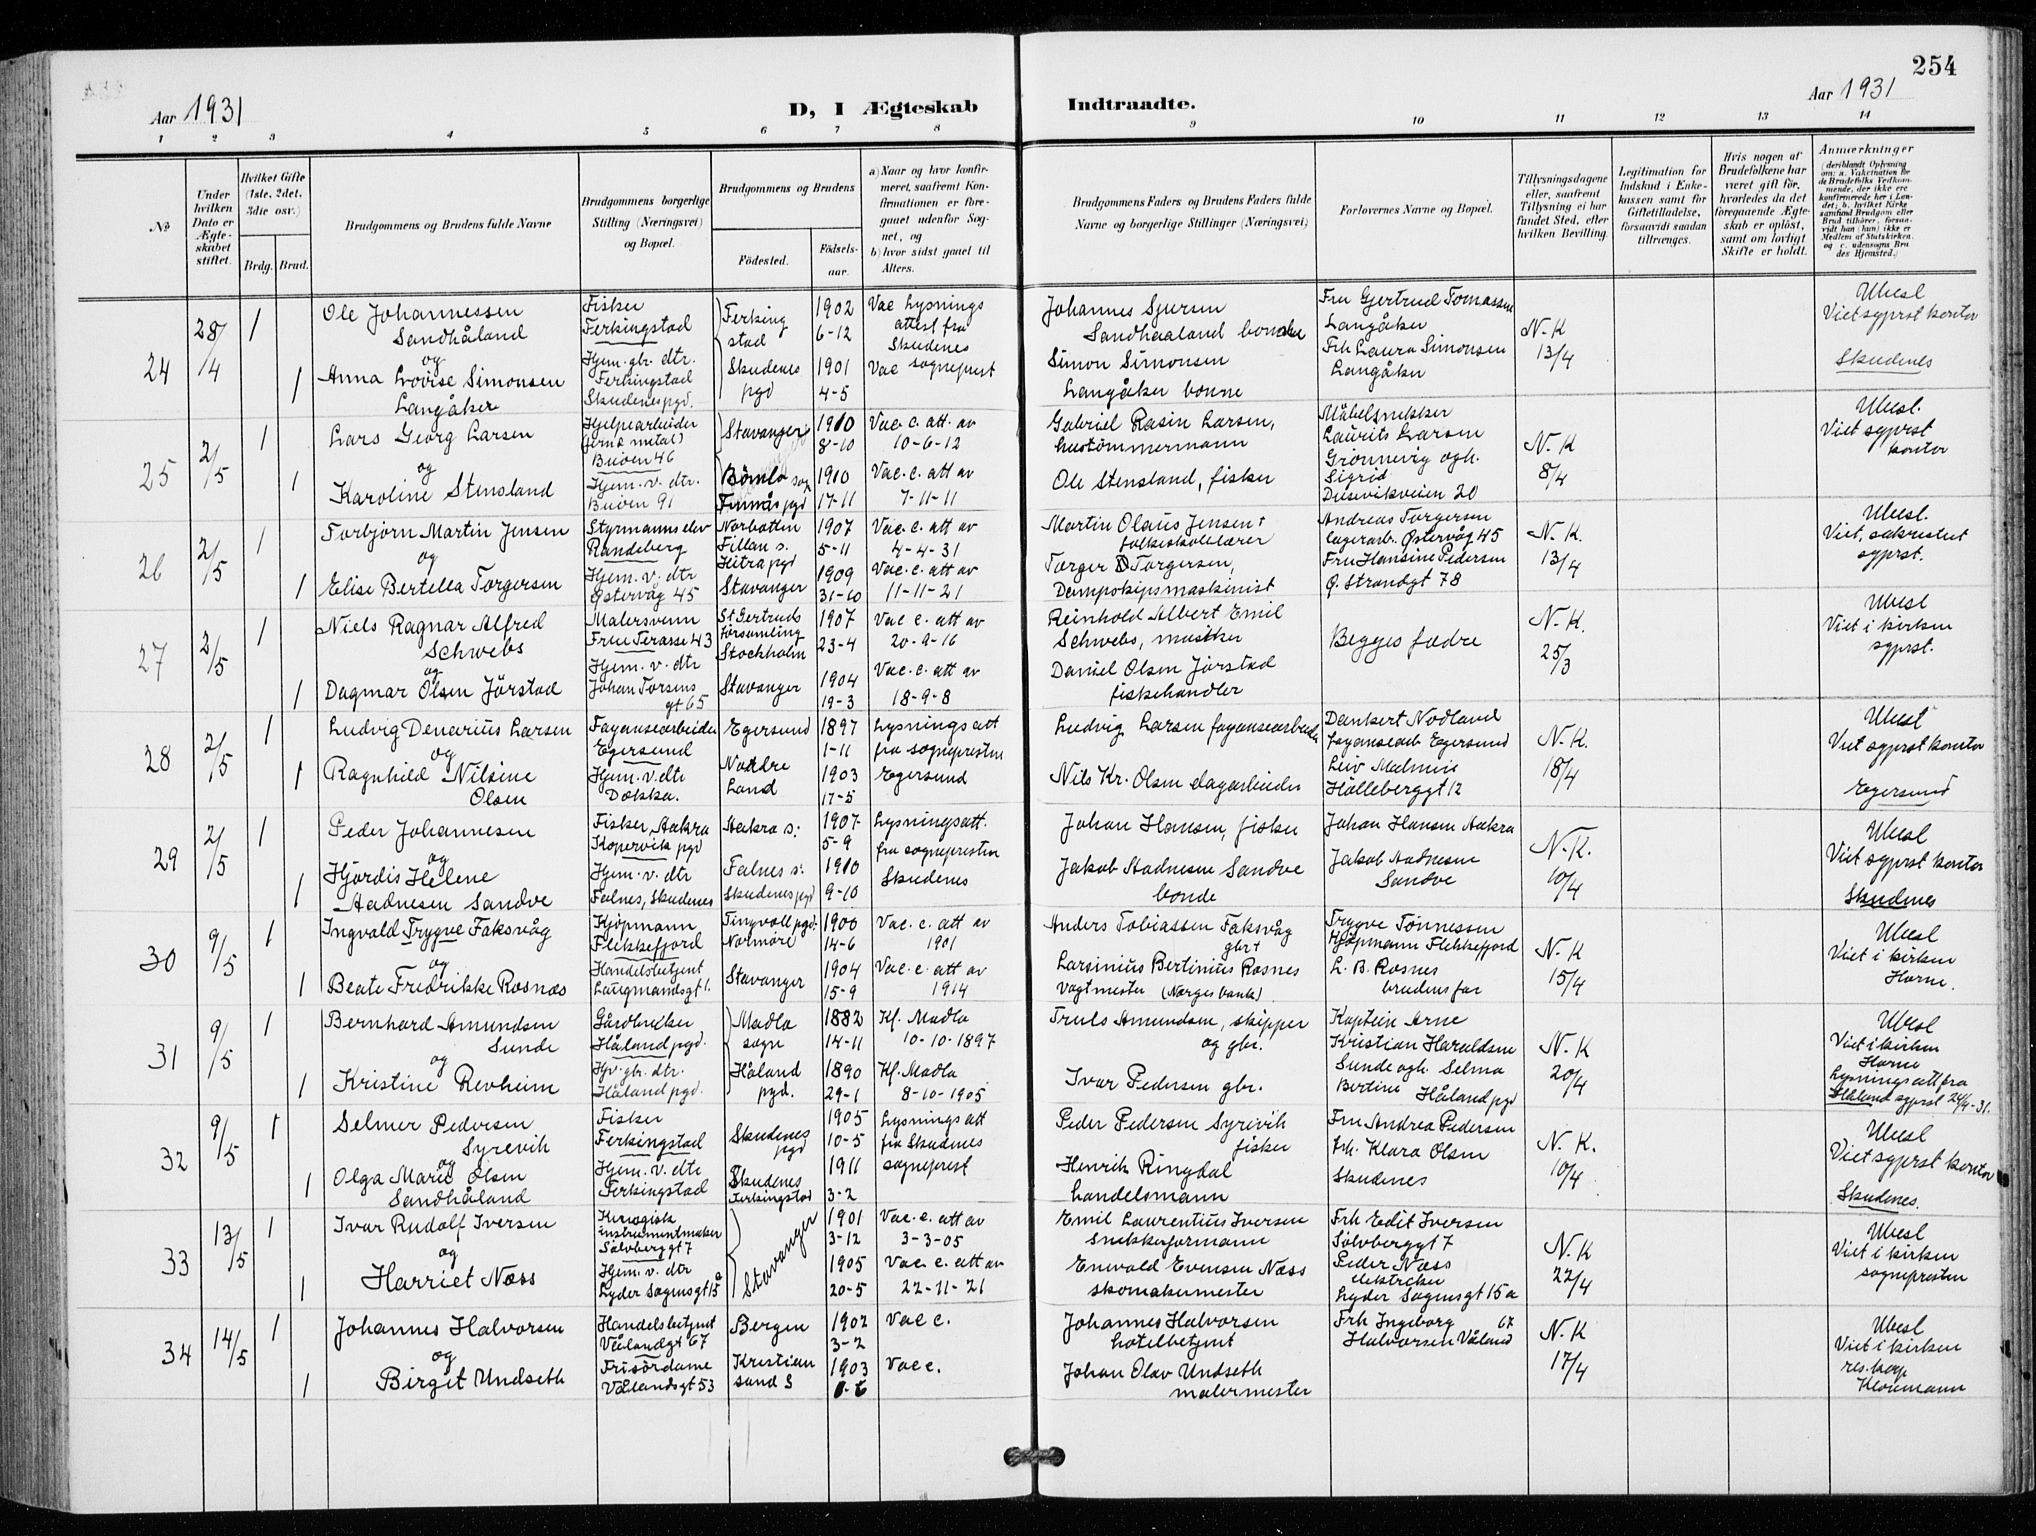 254
Aar 1931
D, I Ægteskab Indtraadte.
Aar 1931
1 2 3 4 5 6 7 8 9 10 11 12 13 14
No
Under hvilken Dato er Ægteskabet stiftet.
Hvilket Gifte (1ste, 2det, 3die osv.)
Brdg. Brud.
Brudgommens og Brudens fulde Navne
Brudgommens borgerlige Stilling (Næringsvei) og Bopæl.
Brudgommens og Brudens
Födested.
Födselsaar.
a) Naar og hvor konfirmeret, saafremt Konfirmationen er foregaaet udenfor Sognet, og
b) hvor sidst gaaet til Alters.
Brudgommens Faders og Brudens Faders fulde Navne og borgerlige Stillinger (Næringsvei)
Forlovernes Navne og Bopæl.
Tillysningsdagene eller, saafremt Tillysning ei har fundet Sted, efter hvilken Bevilling.
Legitimation for Indskud i Enkekassen samt for Giftetilladelse, forsaavidt saadan tiltrænges.
Hvis nogen af Brudefolkene har været gift för, hvorledes da det foregaaende Ægteskab er oplöst, samt om lovligt Skifte er holdt.
Anmærkninger
(deriblandt Oplysning om: a. Vakcination for de Brudefolks Vedkommende, der ikke ere konfirmerede her i Landet; b. hvilket Kirkesamfund Brudgom eller Brud tilhörer, forsaavidt han (hun) ikke er Medlem af Statskirken, og c. udensogns Brudes Hjemsted.)
24
28/4
1
Ole Johannessen
Sandhåland
og
1
Anna Lovise Simonsen
Langåker
Fisker
Ferkingstad
Hjem. gbr. dtr.
Ferkingstad
Skudenes pgd.
Ferking
stad
Skudenes
pgd
1902
6-12
1901
4-5
Vac Lysnings
attest fra
Skudenes
Vac sogneprest
Johannes Sjursen
Sandhaaland bonde
Simon Simonsen
Langåker bonde
Fru Gjertrud Tomassen
Langåker
Frk Laura Simonsen
Langåker
N.K
13/4
Ubesl
Viet sgprst kontor
Skudenes
25
2/5
1
Lars Georg Larsen
og
1
Karoline Stensland
Hjelpearbeider
(jern & metal)
Buöen 46
Hjem. v. dtr.
Buöen 91
Stavanger
Bömlo sogn
Finnås pgd
1910
8-10
1910
17-11
Vac. c. att. av
10-6-12
Vac. c. att av
7-11-11
Gabriel Rasin Larsen,
hustömmermann
Ole Stensland, fisker
Möbelsnekker
Laurits Larsen
Grönnevig og h.
Sigrid
Dusevikveien 20
N.K
8/4
Ubesl.
Viet sgprst
kontor
26
2/5
1
Torbjörn Martin Jensen
og
1
Elise Bertella Torgersen
Styrmannselev
Randeberg
Hjem. v. dtr
Östervåg 45
Fillan s.
Hitra pgd
Stavanger
1907
5-11
1909
31-10
Vac. c. att av
4-4-31
Vac. c. att av
11-11-21
Martin Olaus Jensen +
folkeskolelærer
Torger D Torgersen,
Dampskipsmaskinist
Andreas Torgersen
lagerarb. Östervåg 45
Fru Hansine Pedersen
Ö. Strandgt 78
N.K.
13/4
Ubesl.
Viet, sakristiet
sgprst.
27
2/5
1
Niels Ragnar Alfred
Schwebs
og
1
Dagmar Olsen Jörstad
Malersvenn
Frue Terasse 43
Hjem. v. dtr
Johan Torsens
gt 65
St Gertruds
församling
Stockholm
Stavanger
1907
23-4
1904
19-3
Vac c. att av
20-9-16
Vac. c. att av
18-9-8
Reinhold Albert Emil
Schwebs, musiker
Daniel Olsen Jörstad
fiskehandler
Begges fædre
N.K.
25/3
Ubesl
Viet i kirken
sgprst.
28
2/5
1
Ludvig Denarius Larsen
og
1
Ragnhild Nilsine
Olsen
Fayansearbeider
Egersund
Hjem. v. dtr
Dokka.
Egersund
Nordre
Land
1897
1-11
1903
17-5
Lysningsatt
fra sognepresten
Egersund
Ludvig Larsen fayansearbeider
Nils Kr. Olsen dagarbeider
Dankert Nodland
fayansearb Egersund
Leiv Malmin
Hölleberggt 12
N.K.
18/4
Ubesl
Viet sgprst kontor
Egersund
29
2/5
1
Peder Johannesen
og
1
Hjördis Helene
Aadnesen Sandve
Fisker, Aakra
Kopervik pgd
Hjem. v. dtr
Falnes, Skudenes
Aakra s.
Falnes s.
Skudenes pgd
1907
5-9
1910
9-10
Lysningsatt.
fra sognepresten
Skudenes
Johan Hansen, fisker
Jakob Aadnesen Sandve
bonde
Johan Hansen Aakra
Jakob Aadnesen
Sandve
N.K.
10/4
Ubesl
Viet sgprst kontor
Skudenes
30
9/5
1
Ingvald Trygve Faksvåg
og
1
Beate Fredrikke Rosnæs
Kjöpmann
Flekkefjord
Handelsbetjent
Laugmandsgt 1.
Tingvoll pgd.
Normöre
Stavanger
1900
14-6
1904
15-9
Vac. c. att av
1901
Vac. c. att av
1914
Anders Tobiassen Faksvåg
gbr +
Larsinius Bertinius Rosnes
vagtmester (Norges bank)
Trygve Tönnessen
Kjöpmann Flekkefjord
L. B. Rosnes
brudens far
N.K
15/4
Ubesl
Viet i kirken
Horne.
31
9/5
1
Bernhard Amundsen
Sunde
og
1
Kristine Revheim
Gårdbruker
Håland pgd.
Hjv. gbr. dtr.
Håland pgd.
Madla
sogn
Håland
pgd.
1882
14-11
1890
29-1
Kf. Madla
10-10-1897
Kf. Madla
8-10-1905
Truls Amundsen, skipper
og gbr.
Ivar Pedersen gbr.
Kaptein Arne
Kristian Haraldsen
Sunde og h. Selma
Bertine Håland pgd
N.K
20/4
Ubesl
Viet i kirken
Horne
Lysningsatt fra
Håland sgprst 24/4-31.
32
9/5
1
Selmer Pedersen
Syrevik
og
1
Olga Marie Olsen
Sandhåland
Fisker
Ferkingstad
Hjem. v. dtr
Ferkingstad
Skudenes
pgd
Skudenes
Ferkingstad
1905
10-5
1911
3-2
Lysningsatt
fra Skudenes
sogneprest
Peder Pedersen Syrevik
fisker
Henrik Ringdal
handelsmann
Fru Andrea Pedersen
frk. Klara Olsen
Skudenes
N.K.
10/4
Ubesl
Viet sgprst kontor
Skudenes.
33
13/5
1
Ivar Rudolf Iversen
og
1
Harriet Næss
Kirurgisk
instrumentmaker
Sölvberggt 7
Hjem. v. dtr
Lyder Sagensgt 15a
Stavanger
1901
3-12
1905
20-5
Vac. c. att av
3-3-05
Vac. c. att av
22-11-21
Emil Laurentius Iversen
snekkerformann
Enevald Evensen Næss
skomakermester
Frk Edit Iversen
Sölvberggt 7
Peder Næss
elektriker
Lyder Sagensgt 15a
N.K
22/4
Ubesl
Viet i kirken
sognepresten
34
14/5
1
Johannes Halvorsen
og
1
Birgit Undseth
Handelsbetjent
Vålandgt 67
Frisördame
Vålandsgt 53
Bergen
Kristian
sand S
1902
3-2
1903
Vac c.
Vac c.
Johannes Halvorsen
hotelbetjent
Johan Olav Undseth
malermester
Frk Ingeborg
Halvorsen Våland 67
N.K
17/4
Ubesl
Viet i kirken
res. kap